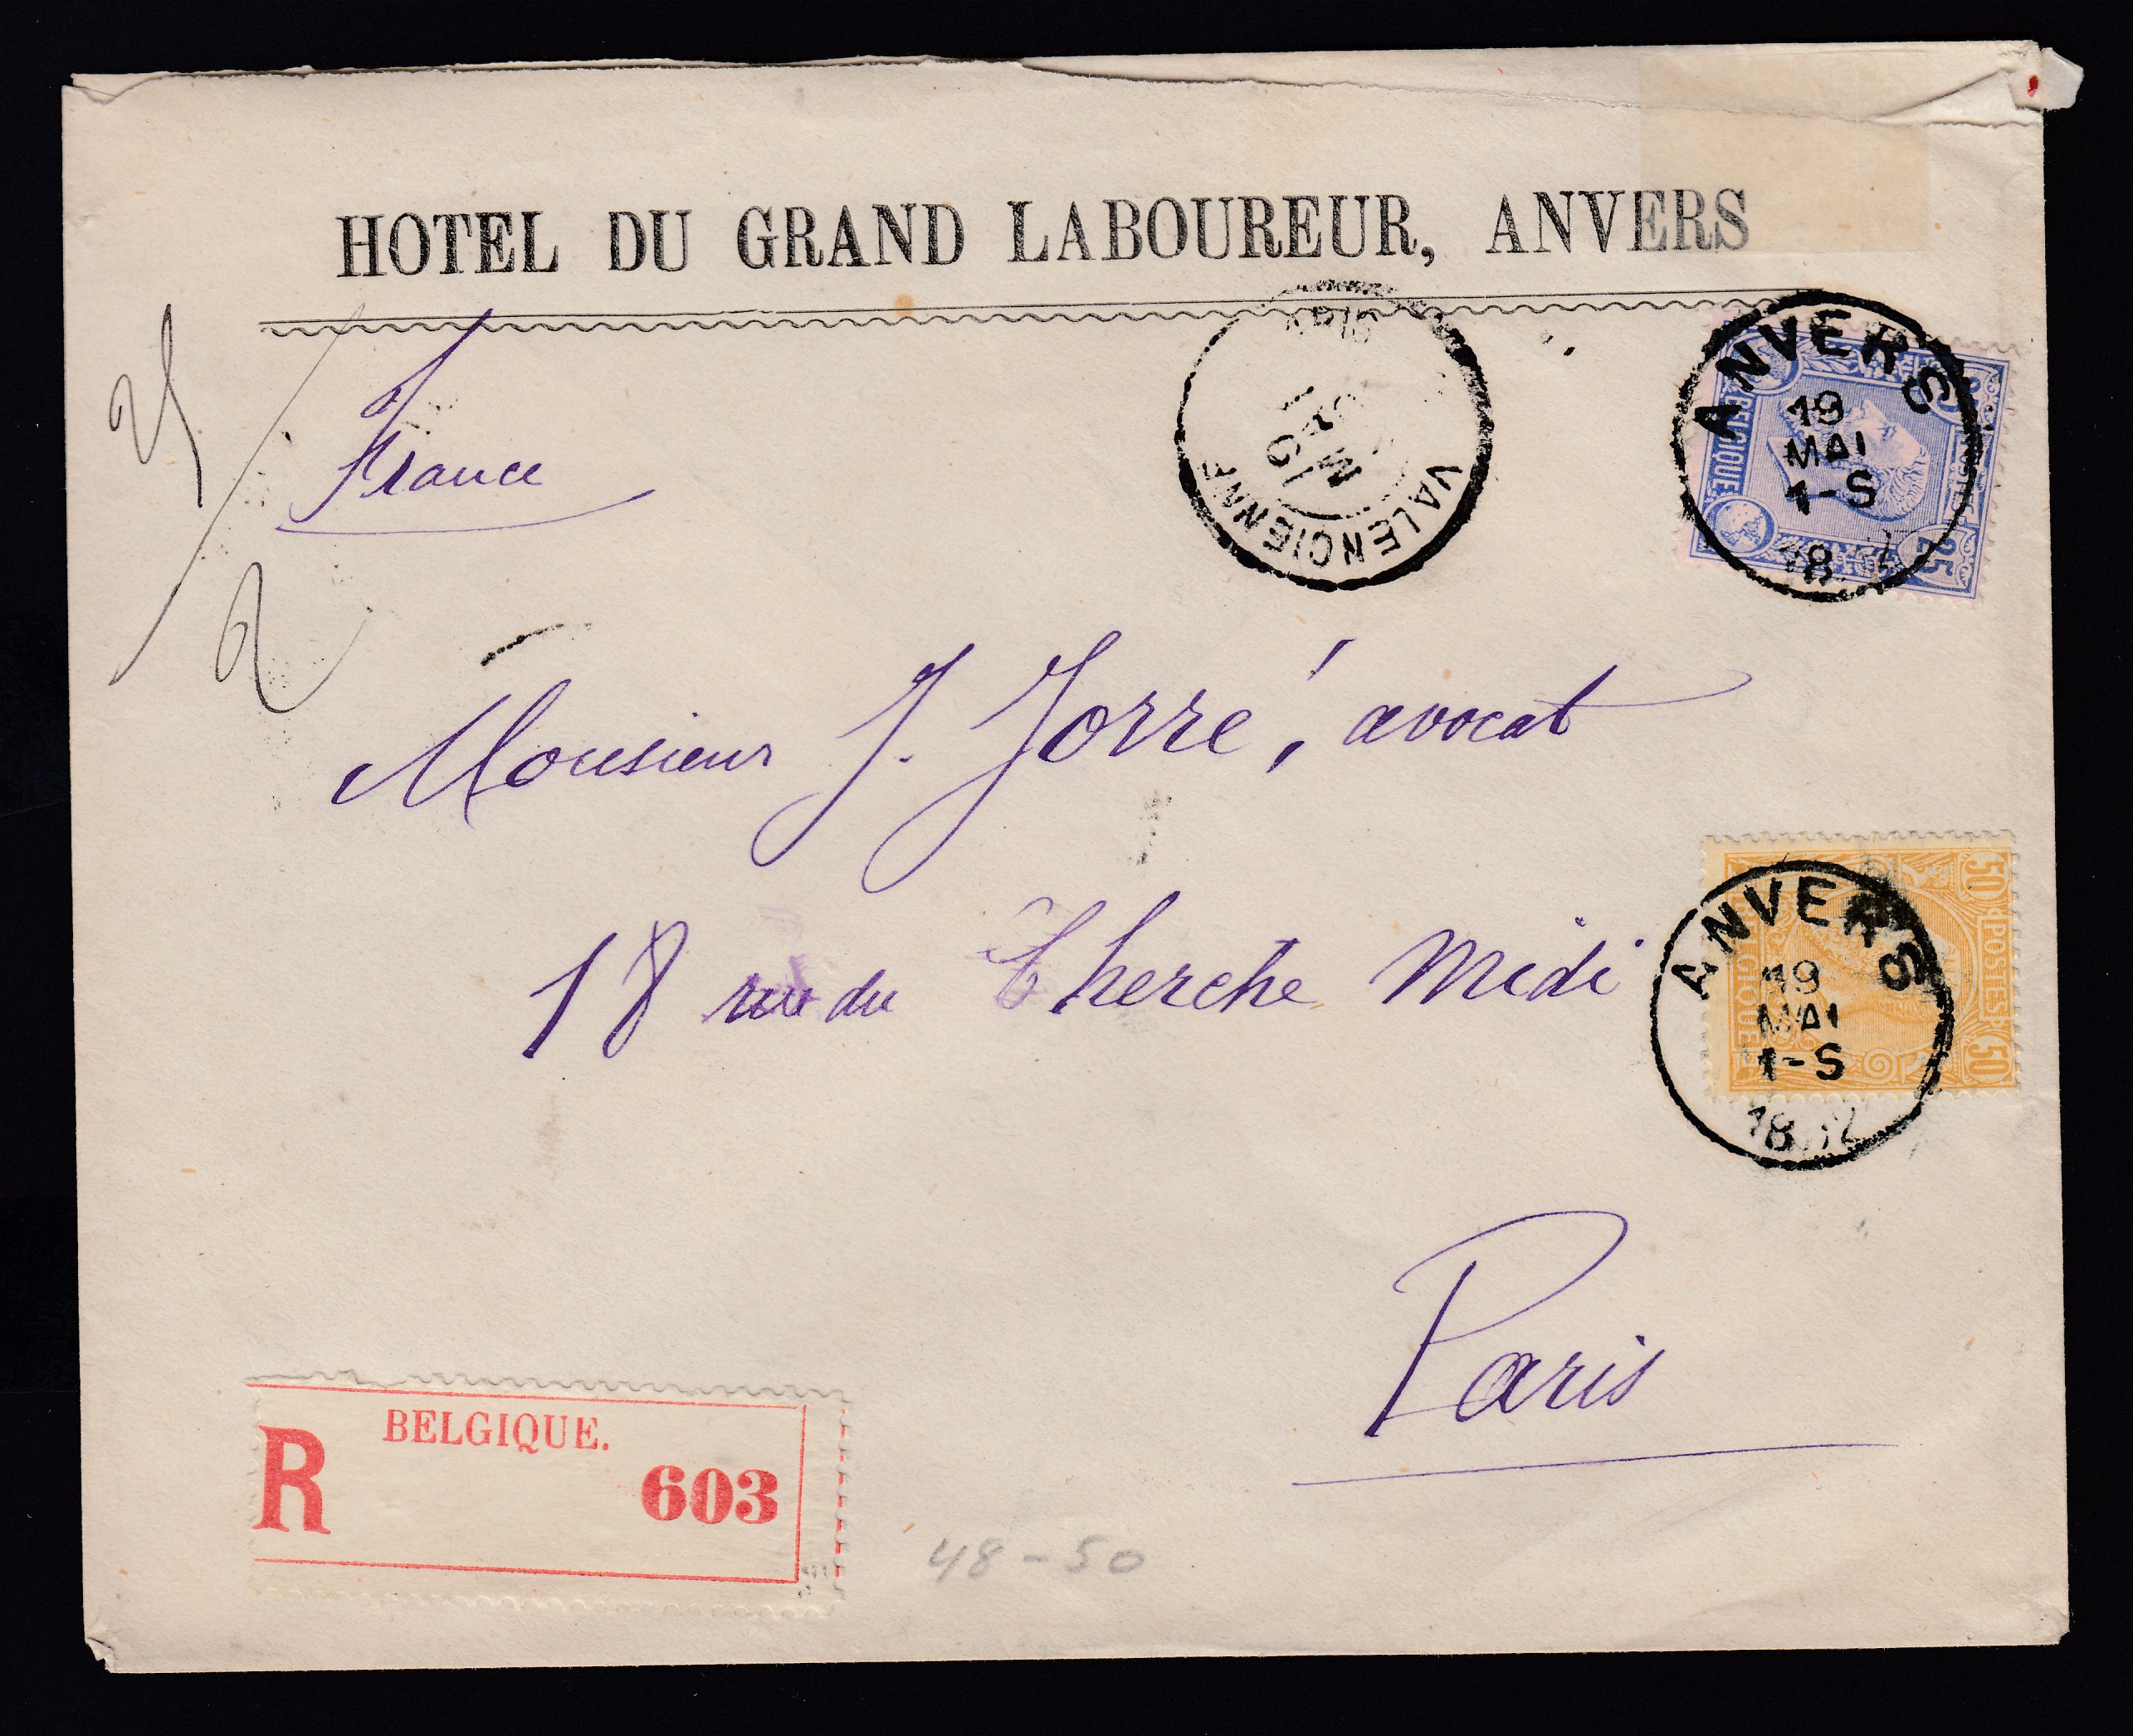 HOTEL DU GRAND LABOUREUR, ANVERS
France
2
VALENCIENNE
ANVERS
19
MAI
1-S
18
25
BELGIQUE
Monsieur J. Jorré, avocat
18 rue du Cherche Midi
ANVERS
19
MAI
1-S
18
50 POSTES 50
Paris
R BELGIQUE.
603
48-50